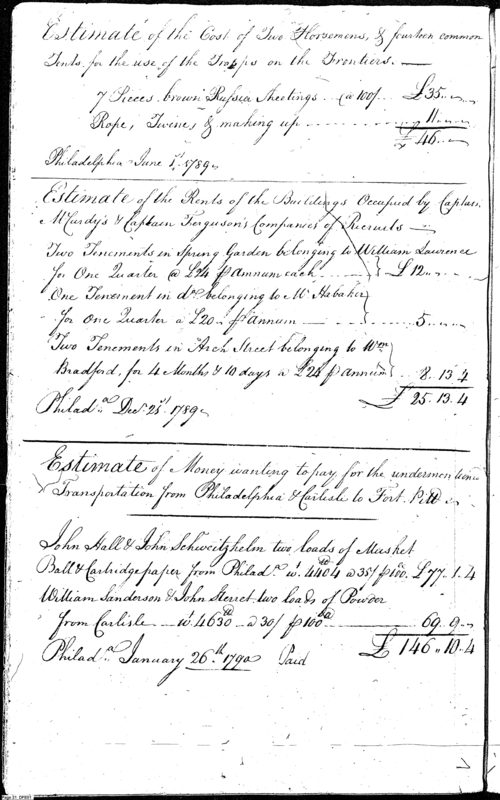 Estimate of the Cost of Two Horsemens, & fourteen common
Tents, for the use of the Troops on the Frontiers. —
7 Pieces brown Russia Sheetings .. @ 100/. .. £35 .. " .. "
Rope, Twine, & making up .. 11 .. " .. "
£ 46 .. " .. "
Philadelphia June 1st, 1789.
Estimate of the Rents of the Buildings Occupied by Captain
McCurdy's & Captain Ferguson's Companies of Recruits —
Two Tenements in Spring Garden belonging to William Lawrence
for One Quarter @ £24 p annum each .. £ 12 .. " .. "
One Tenement in do. belonging to Mr. Habaker
for One Quarter a £20 p annum — .. 5 .. " .. "
Two Tenements in Arch Street belonging to Wm
Bradford, for 4 Months & 10 days a £24 p annum .. 8. 13. 4
£ 25. 13. 4
Philada. Decr. 25t 1789
Estimate of Money wanting to pay for the undermentioned
Transportation from Philadelphia & Carlisle to Fort Pitt
John Hall & John Schweitzhelm two loads of Musket
Ball & Cartridge paper from Philada. wt. 4404 a 35/ p 100. £77 .. 1. 4
William Sanderson & John Herret two loads of Powder
from Carlisle — wt. 4630 a 30/ p 100 69. 9. "
£ 146 .. 10 .. 4
Philada. January 26th. 1790 Paid